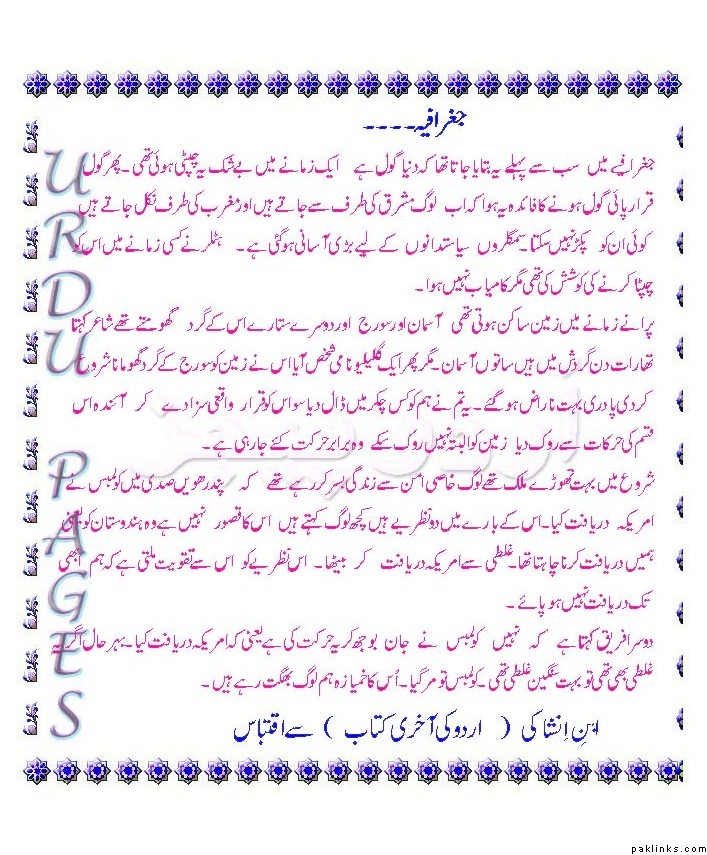 جغرافیہ ۔۔۔۔
جغرافیے میں سب سے پہلے یہ بتایا جاتا تھا کہ دنیا گول ہے ایک زمانے میں بے شک یہ چپٹی ہوئی تھی ۔ پھر گول
قرار پائی گول ہونے کا فائدہ یہ ہوا کہ اب لوگ مشرق کی طرف سے جاتے ہیں اور مغرب کی طرف نکل جاتے ہیں
کوئی ان کو پکڑ نہیں سکتا۔ سمگلروں سیاستدانوں کے لیے بڑی آسانی ہو گئی ہے۔ ہٹلر نے کسی زمانے میں اس کو
چپٹا کرنے کی کوشش کی تھی مگر کامیاب نہیں ہوا ۔
پرانے زمانے میں زمین ساکن ہوتی تھی آسمان اور سورج اور دوسرے ستارے اس کے گرد گھومتے تھے شاعر کہتا
تھا رات دن گردش میں ہیں ساتوں آسمان۔ مگر پھر ایک گلیلیو نامی شخص آیا اس نے زمین کو سورج کے گرد گھومانا شروع
کر دی پادری بہت ناراض ہو گئے۔ یہ تم نے ہم کو کس چکر میں ڈال دیا سو اس کو قرار واقعی سزا دے کر آئندہ اس
قسم کی حرکات سے روک دیا زمین کو البتہ نہیں روک سکے وہ برابر حرکت کئے جا رہی ہے۔
شروع میں بہت تھوڑے ملک تھے لوگ خاصی امن سے زندگی بسر کر رہے تھے کہ پندرھویں صدی میں کولمبس نے
امریکہ دریافت کیا۔ اس کے بارے میں دو نظریے ہیں کچھ لوگ کہتے ہیں اس کا قصور نہیں ہے وہ ہندوستان کو یعنی
ہمیں دریافت کرنا چاہتا تھا۔ غلطی سے امریکہ دریافت کر بیٹھا۔ اس نظریے کو اس سے تقویت ملتی ہے کہ ہم ابھی
تک دریافت نہیں ہو پائے ۔
دوسرا فریق کہتا ہے کہ نہیں کولمبس نے جان بوجھ کر یہ حرکت کی ہے یعنی کہ امریکہ دریافت کیا۔ بہر حال اگر یہ
غلطی بھی تھی تو بہت سنگین غلطی تھی۔ کولمبس تو مر گیا۔ اُس کا خمیازہ ہم لوگ بھگت رہے ہیں ۔
ابنِ اِنشا کی ( اردو کی آخری کتاب ) سے اقتباس
URDU PAGES
اردو پیجز
paklinks.com